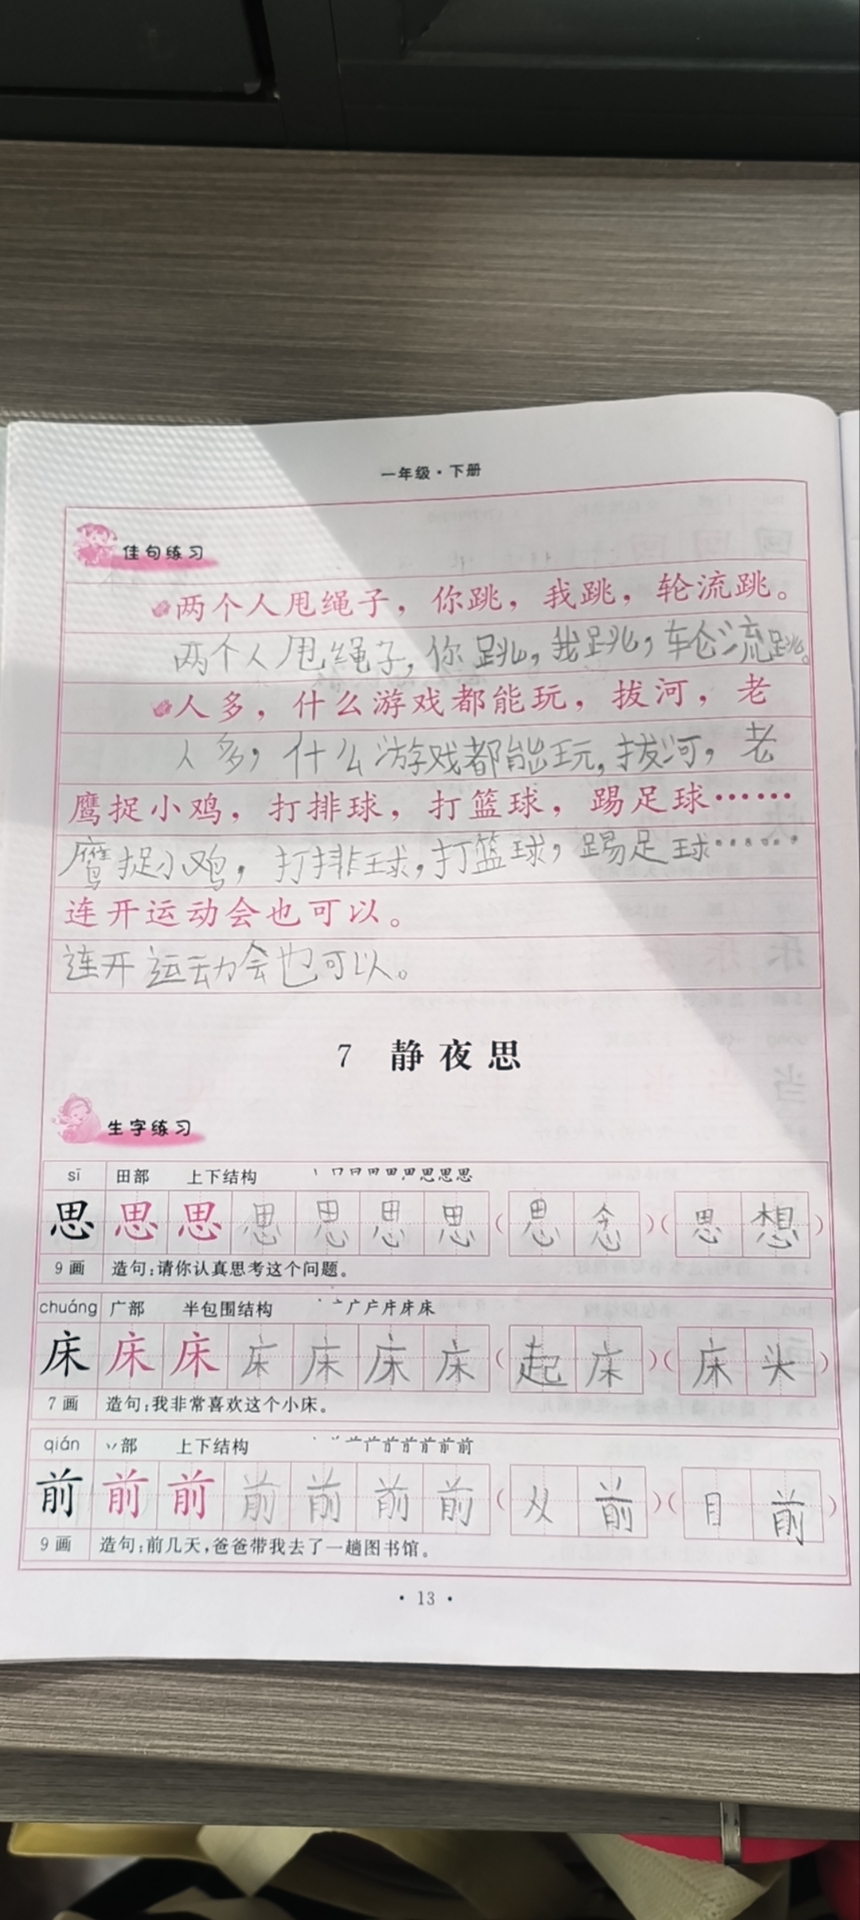 一年级·下册
佳句练习
两个人甩绳子，你跳，我跳，轮流跳。
两个人甩绳子，你跳，我跳，轮流跳。
人多，什么游戏都能玩，拔河，老
人多，什么游戏都能玩，拔河，老
鹰捉小鸡，打排球，打篮球，踢足球……
鹰捉小鸡，打排球，打篮球，踢足球……，
连开运动会也可以。
连开运动会也可以。
7 静夜思
生字练习
sī 田部 上下结构
思 思 思 思 思 思 思 （思念）（思想）
9画 造句：请你认真思考这个问题。
chuáng 广部 半包围结构
床 床 床 床 床 床 床 （起床）（床头）
7画 造句：我非常喜欢这个小床。
qián 丷部 上下结构
前 前 前 前 前 前 前 （从前）（目前）
9画 造句：前几天，爸爸带我去了一趟图书馆。
·13·